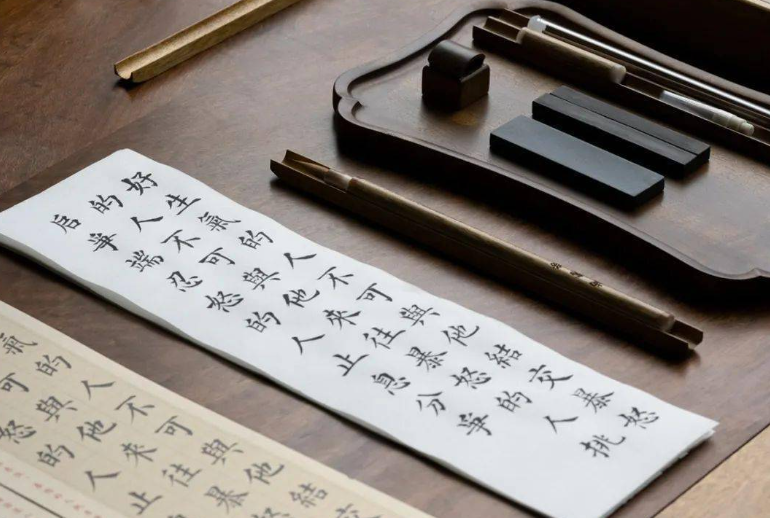 好生氣的人不可與他結交暴怒
的人不可與他來往暴怒的人挑
启爭端忍怒的人止息分爭
氣的人不可與他結交
可與他來往暴
怒的人止